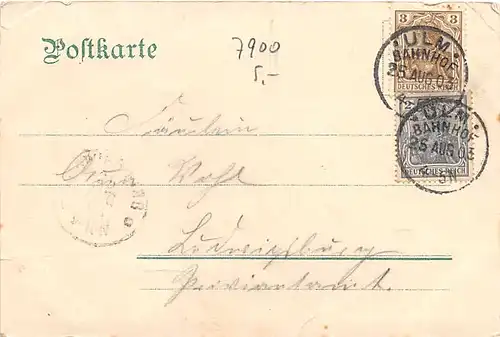 Postkarte
7900
5,-
3
3
DEUTSCHES REICH
ULM
BAHNHOF
25 AUG 03
ULM
BAHNHOF
25 AUG 03
DEUTSCHES REICH
Fräulein
Wohl
Ludwigsburg
Proviantamt.